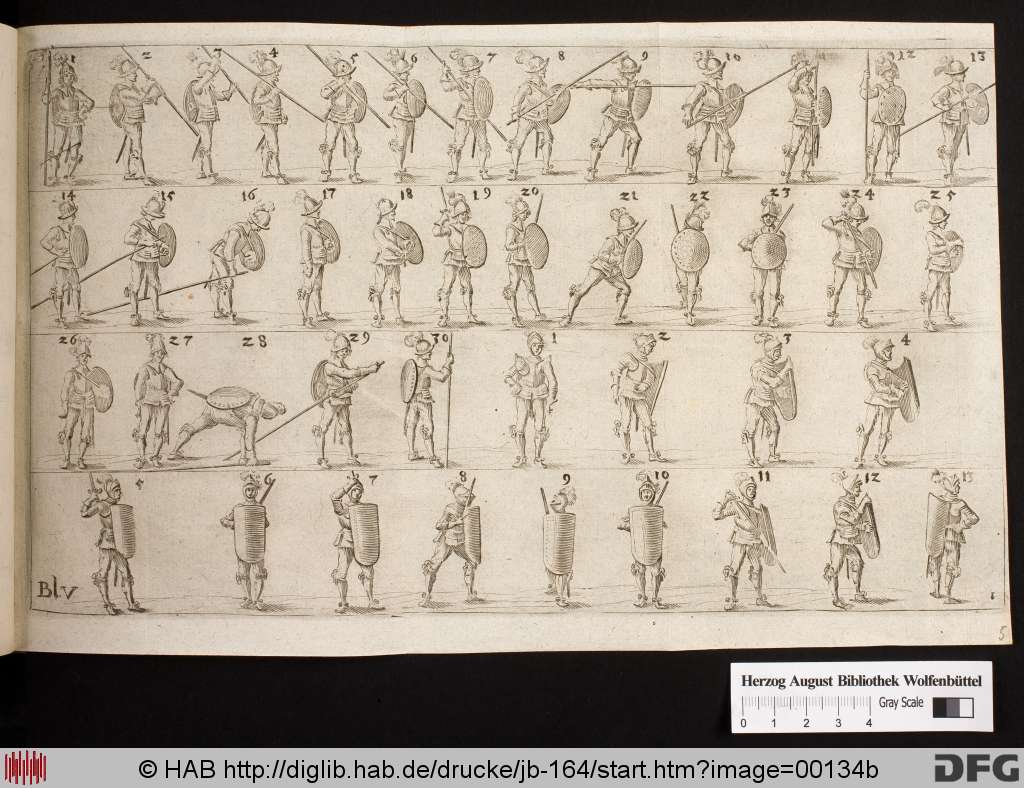 1 2 3 4 5 6 7 8 9 10 12 13
14 15 16 17 18 19 20 21 22 23 24 25
26 27 28 29 30 1 2 3 4
5 6 7 8 9 10 11 12 13
Bl V
5
Herzog August Bibliothek Wolfenbüttel
Gray Scale
0 1 2 3 4
© HAB http://diglib.hab.de/drucke/jb-164/start.htm?image=00134b
DFG